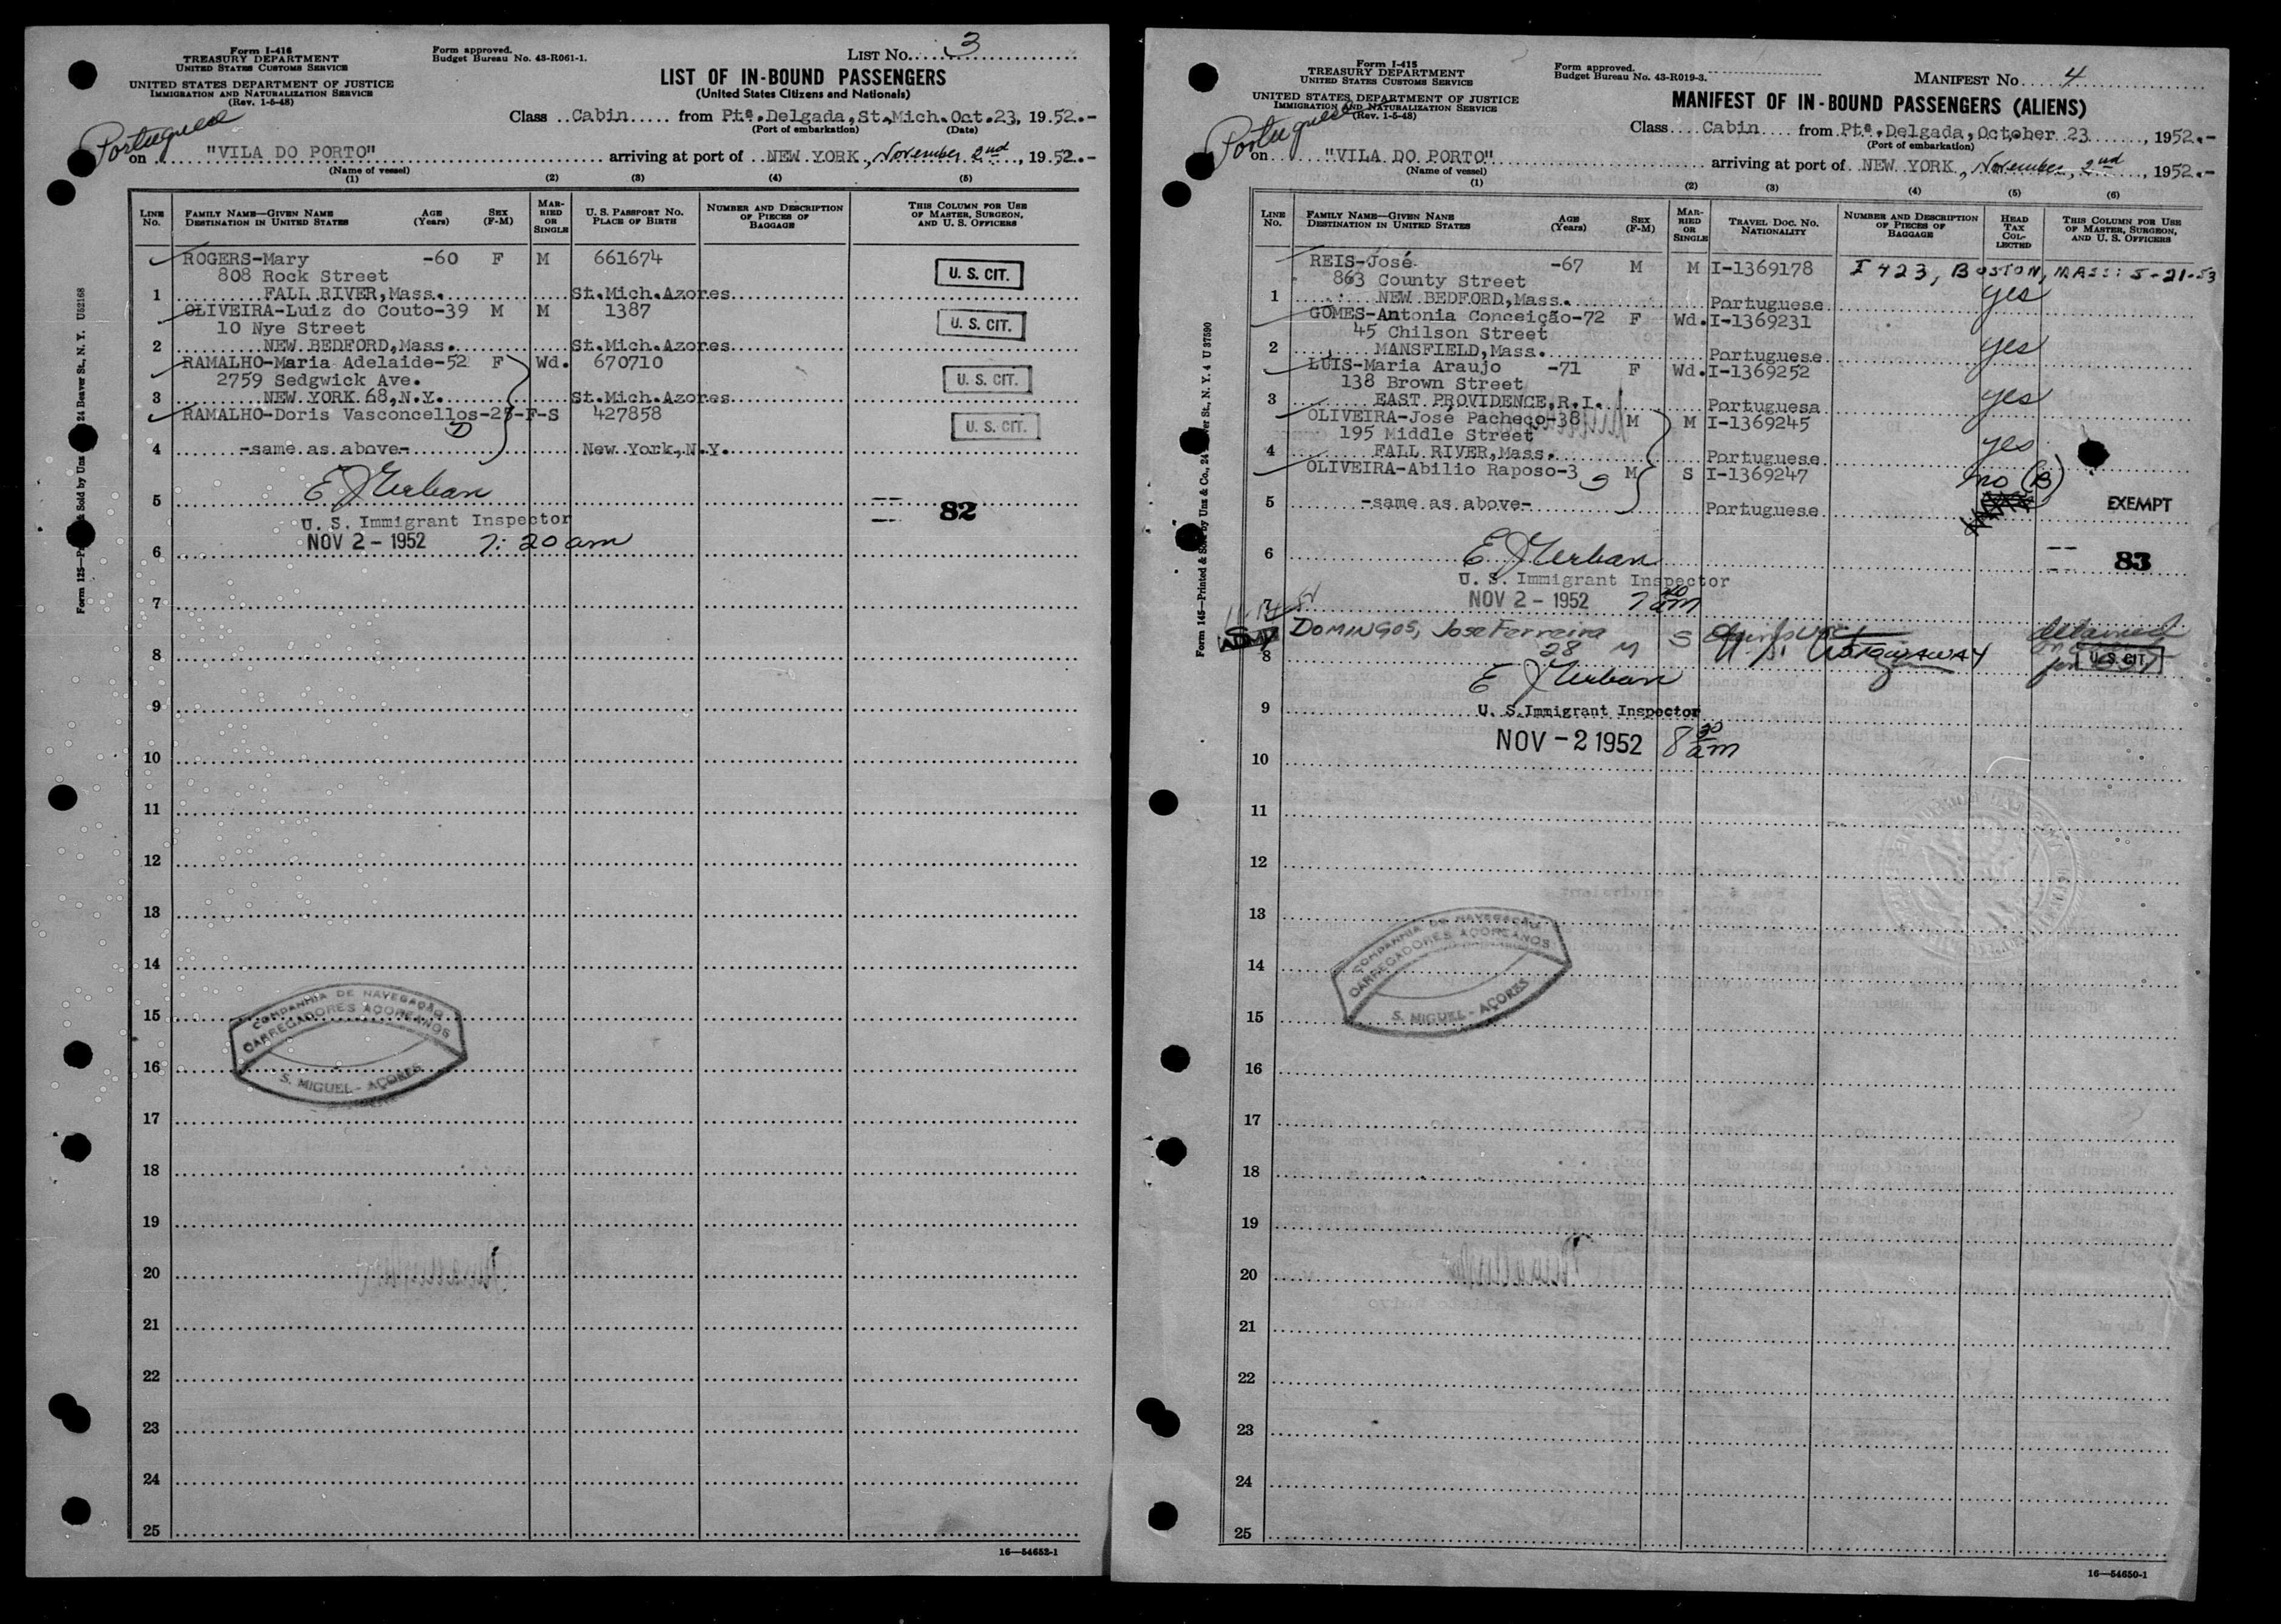 Form I-416
TREASURY DEPARTMENT
UNITED STATES CUSTOMS SERVICE
UNITED STATES DEPARTMENT OF JUSTICE
IMMIGRATION AND NATURALIZATION SERVICE
(Rev. 1-5-48)
Form approved.
Budget Bureau No. 43-R061-1.
LIST No. 3
LIST OF IN-BOUND PASSENGERS
(United States Citizens and Nationals)
Class Cabin from Pta. Delgada, St. Mich. Oct. 23, 1952.-
(Port of embarkation) (Date)
Portuguese
on "VILA DO PORTO" arriving at port of NEW YORK, November 2nd, 1952.-
(Name of vessel)
(1) (2) (3) (4) (5)
LINE No. FAMILY NAME—GIVEN NAME DESTINATION IN UNITED STATES AGE (Years) SEX (F-M) MARRIED OR SINGLE U. S. PASSPORT No. PLACE OF BIRTH NUMBER AND DESCRIPTION OF PIECES OF BAGGAGE THIS COLUMN FOR USE OF MASTER, SURGEON, AND U. S. OFFICERS
ROGERS-Mary -60 F M 661674
808 Rock Street U. S. CIT.
1 FALL RIVER, Mass. St. Mich. Azores
OLIVEIRA-Luiz do Couto-39 M M 1387
10 Nye Street U. S. CIT.
2 NEW BEDFORD, Mass. St. Mich. Azores
RAMALHO-Maria Adelaide-52 F Wd. 670710
2759 Sedgwick Ave. U. S. CIT.
3 NEW YORK 68, N.Y. St. Mich. Azores
RAMALHO-Doris Vasconcellos-25-F-S 427858
D U. S. CIT.
4 -same as above- New York, N.Y.
E J Urban
5 82
U. S. Immigrant Inspector
6 NOV 2 - 1952 7:20 am
7
8
9
10
11
12
13
14
COMPANHIA DE NAVEGAÇÃO
15 CARREGADORES AÇOREANOS
16 S. MIGUEL - AÇORES
17
18
19
20
21
22
23
24
25
16—54652-1
Form 125—
Sold by Unz
24 Beaver St., N. Y. U52168
Form I-415
TREASURY DEPARTMENT
UNITED STATES CUSTOMS SERVICE
UNITED STATES DEPARTMENT OF JUSTICE
IMMIGRATION AND NATURALIZATION SERVICE
(Rev. 1-5-48)
Form approved.
Budget Bureau No. 43-R019-3.
MANIFEST No. 4
MANIFEST OF IN-BOUND PASSENGERS (ALIENS)
Class Cabin from Pta. Delgada, October 23, 1952.-
(Port of embarkation)
Portuguese
on "VILA DO PORTO" arriving at port of NEW YORK, November, 2nd, 1952.-
(Name of vessel)
(1) (2) (3) (4) (5) (6)
LINE No. FAMILY NAME—GIVEN NAME DESTINATION IN UNITED STATES AGE (Years) SEX (F-M) MARRIED OR SINGLE TRAVEL DOC. NO. NATIONALITY NUMBER AND DESCRIPTION OF PIECES OF BAGGAGE HEAD TAX COLLECTED THIS COLUMN FOR USE OF MASTER, SURGEON, AND U. S. OFFICERS
REIS-José -67 M M I-1369178 I 423, BOSTON, MASS: 5-21-53
863 County Street
1 NEW BEDFORD, Mass. Portuguese yes
GOMES-Antonia Conceição-72 F Wd. I-1369231
45 Chilson Street
2 MANSFIELD, Mass. Portuguese yes
LUIS-Maria Araujo -71 F Wd. I-1369252
138 Brown Street
3 EAST PROVIDENCE, R.I. Portuguesa yes
OLIVEIRA-José Pacheco-38 M M I-1369245
195 Middle Street
4 FALL RIVER, Mass. Portuguese yes
OLIVEIRA-Abilio Raposo-3 M S I-1369247 no (B)
S
5 -same as above- Portuguese EXEMPT
6 E J Urban 83
U. S. Immigrant Inspector
7 NOV 2 - 1952 7 20 am
DOMINGOS, Jose Ferreira S detained
8 28 M STOWAWAY U. S. CIT.
E J Urban
9 U. S. Immigrant Inspector
NOV - 2 1952 8 30 am
10
11
12
13
COMPANHIA DE NAVEGAÇÃO
CARREGADORES AÇOREANOS
14
15 S. MIGUEL - AÇORES
16
17
18
19
20
21
22
23
24
25
16—54650-1
Form 145—Printed & Sold by Unz & Co., 24
St., N. Y. 4 U 37590